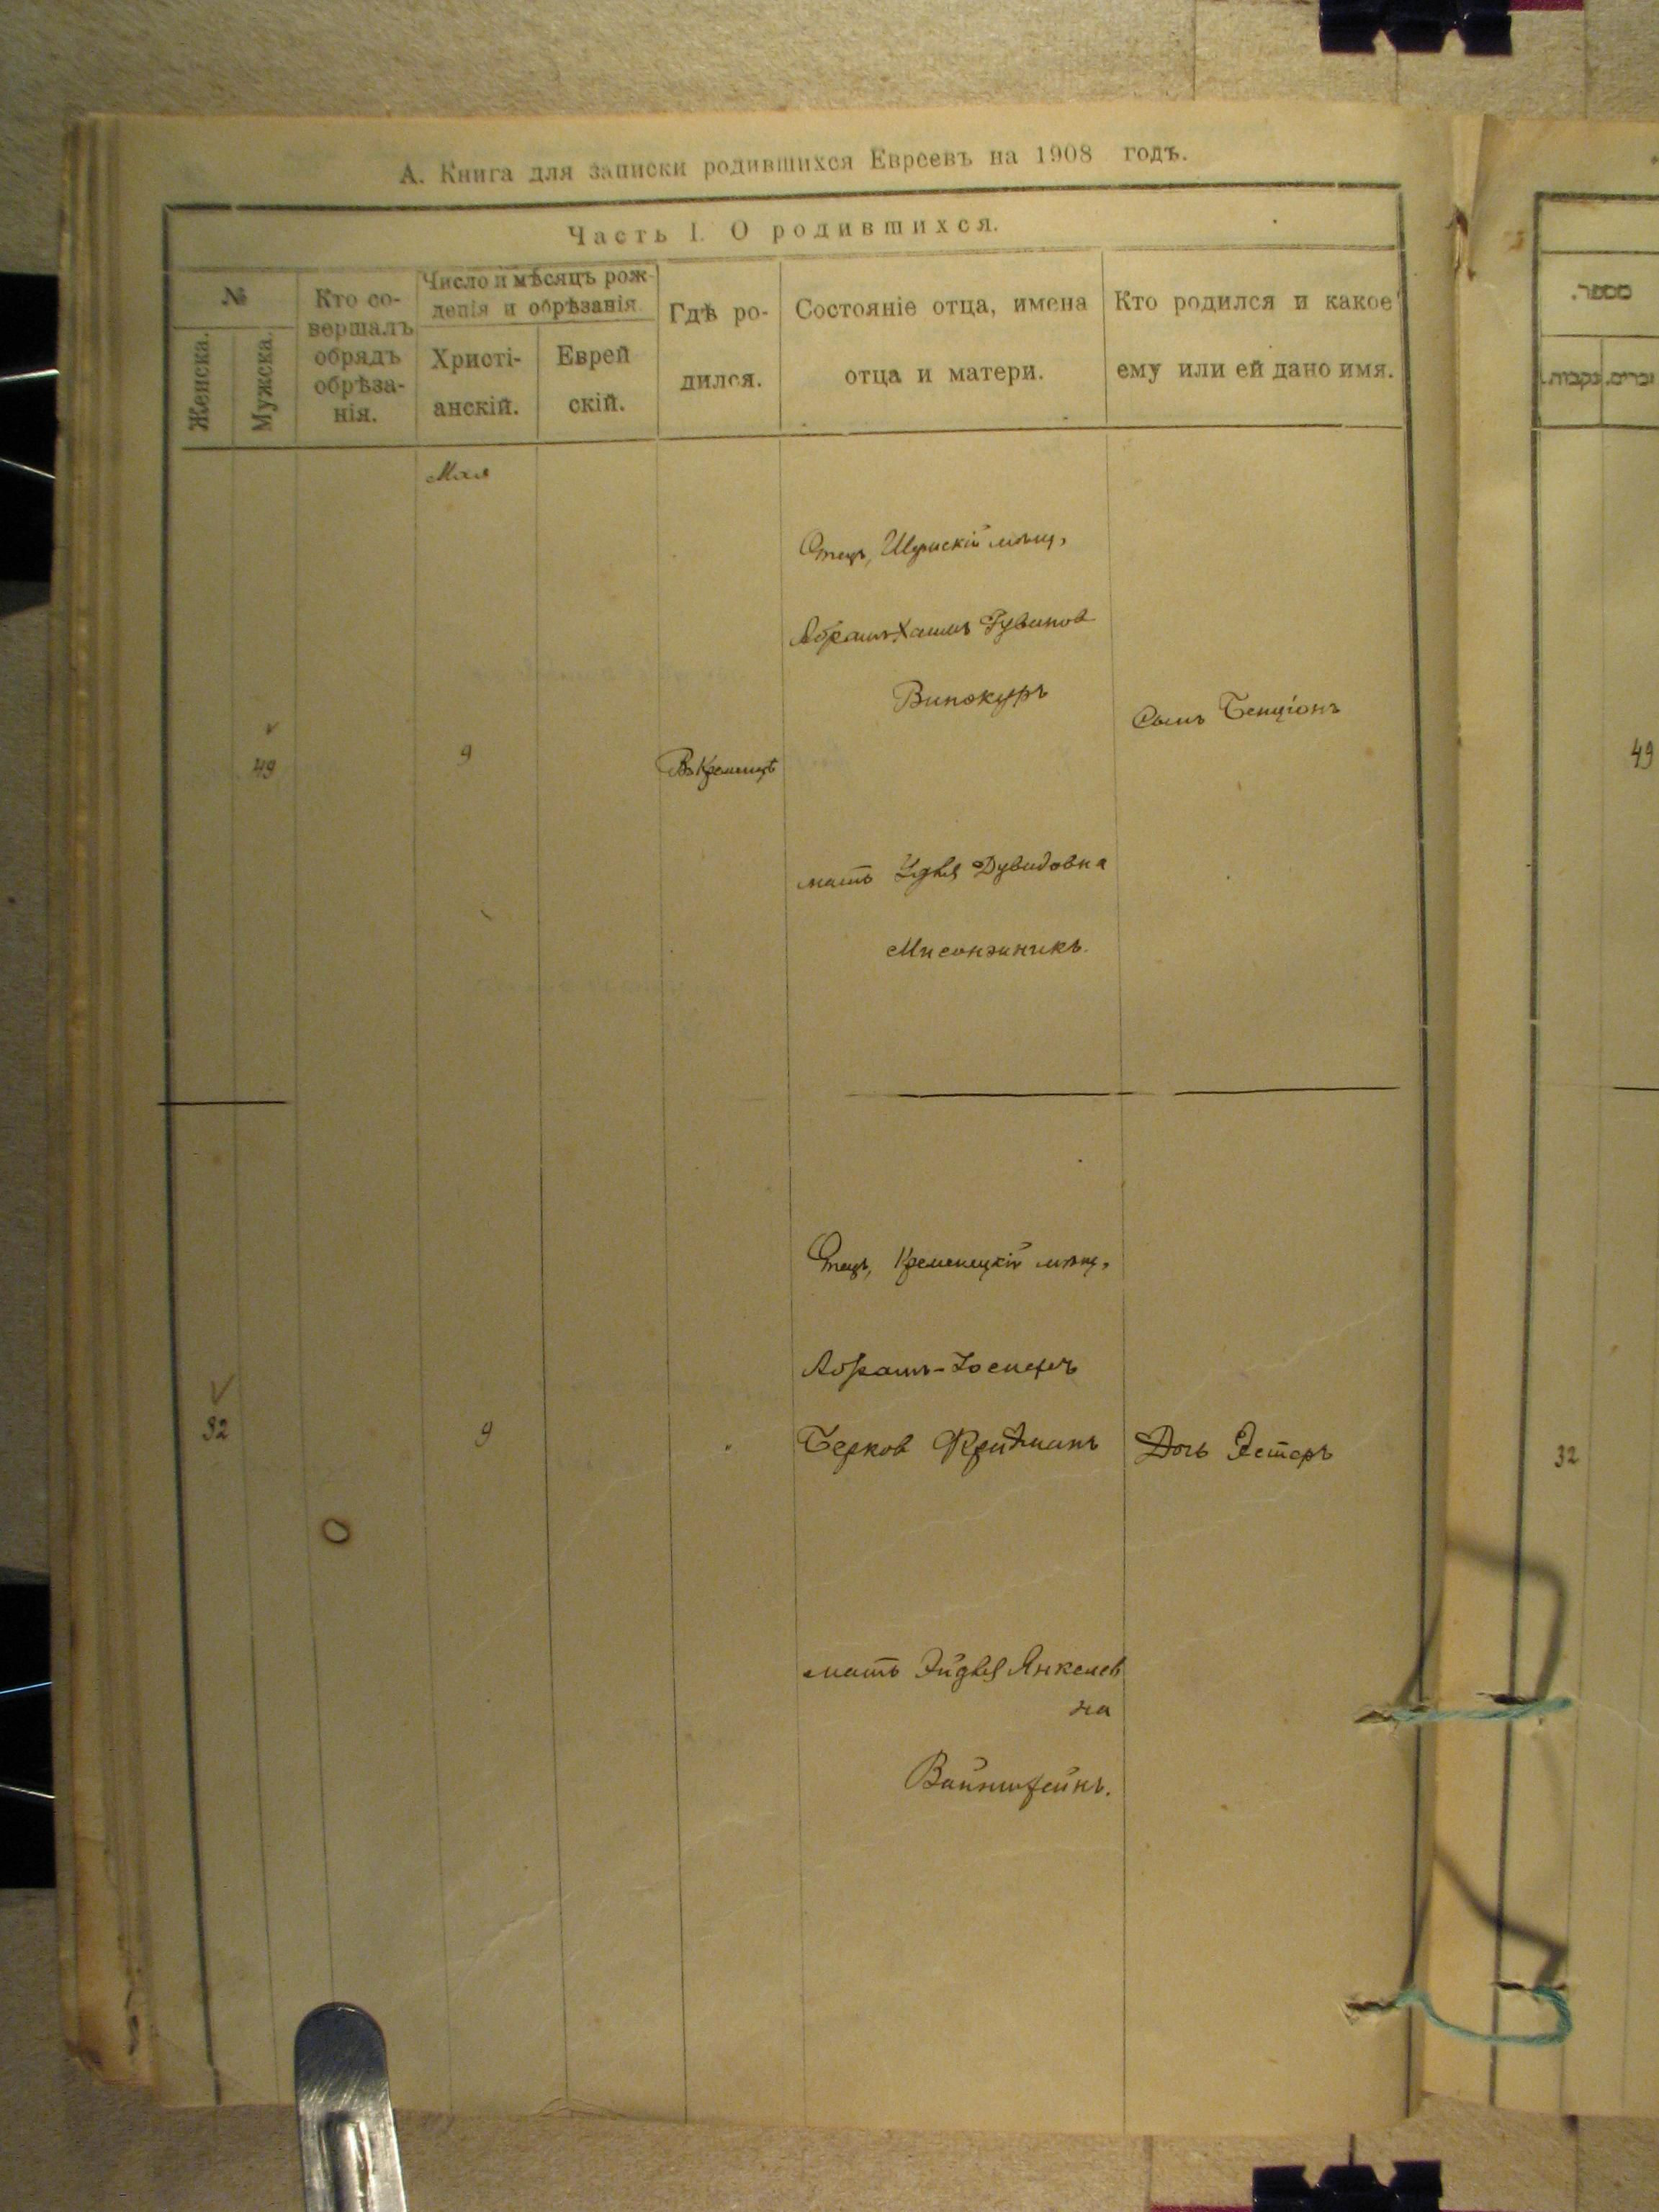 А. Книга для записки родившихся Евреевъ на 1908 годъ.
Часть I. О родившихся.
№
Женска.
Мужска.
Кто со-
вершалъ
обрядъ
обрѣза-
нія.
Число и мѣсяцъ рож-
денія и обрѣзанія.
Христі-
анскій.
Еврей
скій.
Гдѣ ро-
дился.
Состояніе отца, имена
отца и матери.
Кто родился и какое
ему или ей дано имя.
Мая
49
9
Въ Кременцѣ
Отецъ, Шумскій мѣщ,
Абрамъ-Хаимъ Рувинов
Винокуръ
мать Идья Дувидовна
Мисонжникъ.
Сынъ Бенціонъ
32
9
Отецъ, Кременецкій мѣщ,
Абрамъ-Іосифъ
Берков Фридманъ
мать Эйдья Янкелев
на
Вайнштейнъ.
Дочь Эстеръ
מספר.
נקבות.
זכרים.
49
32